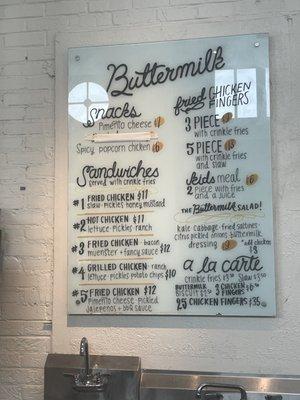 Buttermilk
snacks
Pimento cheese 7
Spicy popcorn chicken 6
Sandwiches
served with crinkle fries
#1 FRIED CHICKEN $11
slaw · pickles · honey mustard
#2 HOT CHICKEN $11
lettuce · pickles · ranch
#3 FRIED CHICKEN · bacon $12
muenster + fancy sauce
#4 GRILLED CHICKEN · ranch
lettuce · pickles · potato chips $10
#5 FRIED CHICKEN $12
Pimento cheese · pickled
jalapeños + bbq sauce
fried CHICKEN FINGERS
3 PIECE
with crinkle fries
5 PIECE
with crinkle fries
and slaw
kids meal
2 PIECE with fries
and a juice
THE Buttermilk SALAD!
kale · cabbage · fried saltines
citrus · pickled onions · buttermilk
dressing 9 *add chicken $3
a la carte
crinkle fries $3 Slaw $3
BUTTERMILK BISCUIT 3 CHICKEN FINGERS $6
25 CHICKEN FINGERS $35